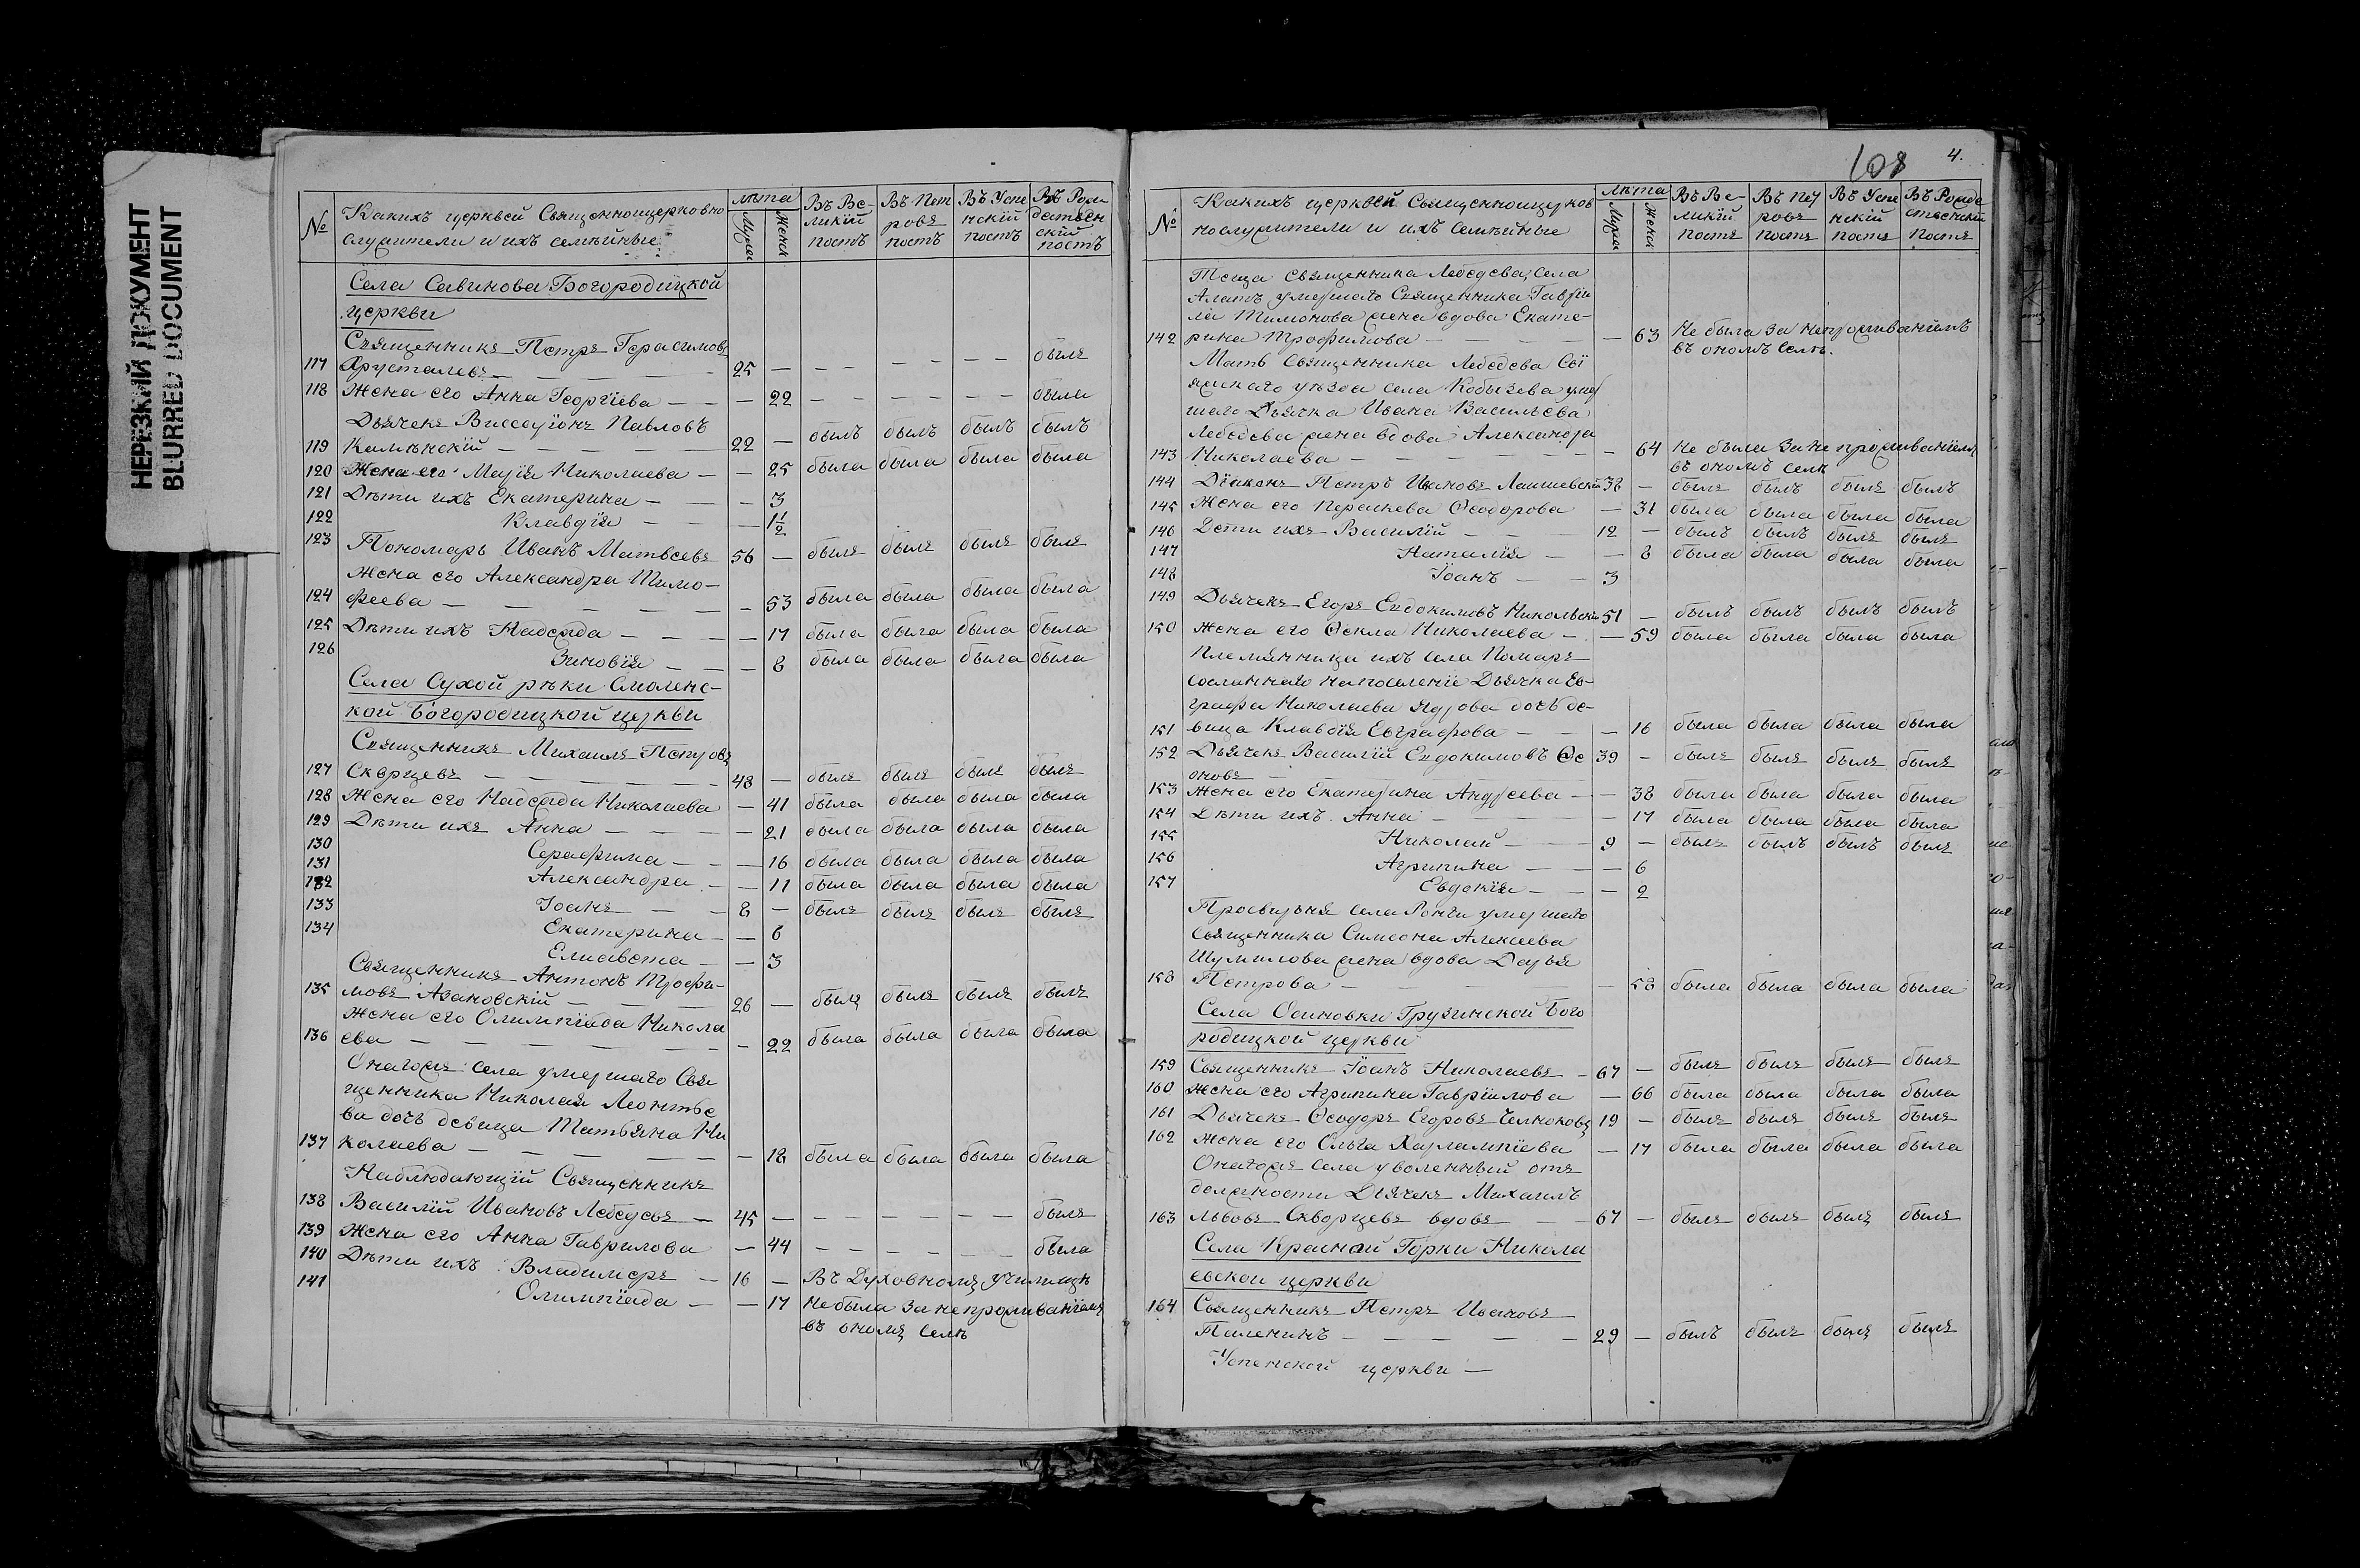 НЕРЕЗКИЙ ДОКУМЕНТ
BLURRED DOCUMENT
№ Какихъ церквей Священноцерковно
служители и ихъ семѣйные
лѣта Мужск Женск
Въ Великій постъ
Въ Петровъ постъ
Въ Успенскій постъ
Въ Рождественскій постъ
Села Савинова Богородицкой
церкви
Священникъ Петръ Герасимовъ
117 Хрусталевъ — 25 — — — — былъ
118 Жена его Анна Георгіева — — 22 — — — была
Дьячекъ Виссаріонъ Павловъ
119 Калинскій — 22 — былъ былъ былъ былъ
120 Жена его Марія Николаева — — 25 была была была была
121 Дѣти ихъ Екатерина — — 3
122 Клавдія — — 1 1/2
123 Пономарь Иванъ Матвеевъ 56 — былъ былъ былъ былъ
Жена его Александра Тимо-
124 феева — — 53 была была была была
125 Дѣти ихъ Надежда — — 17 была была была была
126 Зиновія — — 8 была была была была
Села Сухой рѣки Смоленс-
кой Богородицкой церкви
Священникъ Михаилъ Петровъ
127 Скворцевъ — 48 — былъ былъ былъ былъ
128 Жена его Надежда Николаева — 41 была была была была
129 Дѣти ихъ Анна — — 21 была была была была
130 Серафима — — 16 была была была была
131 Александра — — 11 была была была была
132 Іоанъ — 8 — былъ былъ былъ былъ
133 Екатерина — — 6
134 Елисавета — — 3
Священникъ Антонъ Трофи-
135 мовъ Азановскій — 26 — былъ былъ былъ былъ
Жена его Олимпіада Никола
136 ева — — 22 была была была была
Онагожъ села умершаго Свя
щенника Николая Леонтье
ва дочь девица Татьяна Ни
137 колаева — — 18 была была была была
Наблюдающій Священникъ
138 Василій Ивановъ Лебедевъ — 45 — — — — былъ
139 Жена его Анна Гаврилова — 44 — — — была
140 Дѣти ихъ Владимеръ — 16 — Въ Духовномъ училищѣ
141 Олимпіада — — 17 Не была за непроживаніемъ
въ ономъ селѣ
108 4.
№ Какихъ церквей Священноцерков
нослужители и ихъ семѣйные
лѣта Мужск Женск
Въ Великій постъ
Въ Петровъ постъ
Въ Успенскій постъ
Въ Рождественскій постъ
Теща Священника Лебедева, села
Алатъ умершаго Священника Гаврі
ла Тимонова жена вдова Екате-
142 рина Трофимова — — 63 Не была за непроживаніемъ
въ ономъ селѣ.
Мать Священника Лебедева Сві
яжскаго уѣзда села Кобызева умер
шаго Дьячка Ивана Васильева
Лебедева жена вдова Александра
143 Николаева — — 64 Не была за не проживаніемъ
въ ономъ селѣ
144 Діаконъ Петръ Ивановъ Лаишевскій 38 — былъ былъ былъ былъ
145 Жена его Перасkева Ѳеодорова — 31 была была была была
146 Дети ихъ Василій — 12 — былъ былъ былъ былъ
147 Наталія — — 8 была была была была
148 Іоанъ — 3
149 Дьячекъ Егоръ Евдокимовъ Никольскій 51 — былъ былъ былъ былъ
150 Жена его Ѳекла Николаева — — 59 была была была была
Племянница ихъ села Помаръ
сосланнаго на поселеніе Дьячка Ев-
графа Николаева Ядрова дочь де-
151 вица Клавдія Евграфова — — 16 была была была была
152 Дьячекъ Василій Евдокимовъ Ѳе 39 — былъ былъ былъ былъ
оновъ —
153 Жена его Екатерина Андреева — — 38 была была была была
154 Дѣти ихъ Анна — — 17 была была была была
155 Николай — 9 — былъ былъ былъ былъ
156 Агрипина — — 6
157 Евдокія — — 2
Просвирня села Ронги умершаго
Священника Симеона Алексеева
Шумилова жена вдова Дарья
158 Петрова — — 58 была была была была
Села Осиновки Грузинской Бого
родицкой церкви
159 Священникъ Іоанъ Николаевъ — 67 — былъ былъ былъ былъ
160 Жена его Агрипина Гавріилова — 66 была была была была
161 Дьячекъ Ѳеодоръ Егоровъ Челноковъ 19 — былъ былъ былъ былъ
162 Жена его Ольга Харлампіева — 17 была была была была
Онагожъ села уволенный отъ
должности Дьячекъ Михаилъ
163 Львовъ Скворцевъ вдовъ — 67 — былъ былъ былъ былъ
Села Красной Горки Никола
евской церкви
164 Священникъ Петръ Ивановъ
Пиленинъ — 29 — былъ былъ былъ былъ
Успенской церкви —